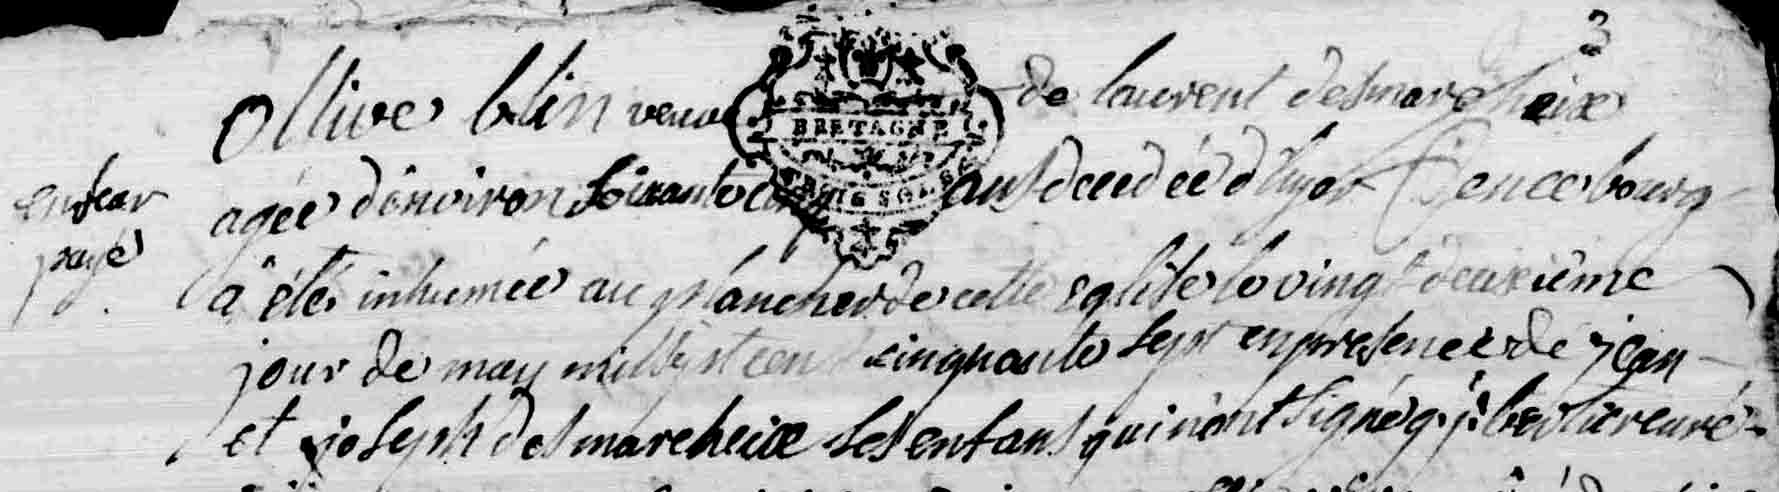 3
Ollive blin veuve de laurent desmarcheix
BRETAGNE
agée d'environ soixante cinq ans decedée d'hyer en ce bourg
enfeu
payé
a été inhumée au plancher de cette eglise le vingt deuxième
jour de may mil sept cent cinquante sept en presence de jean
et joseph desmarcheix ses enfans qui n'ont signé